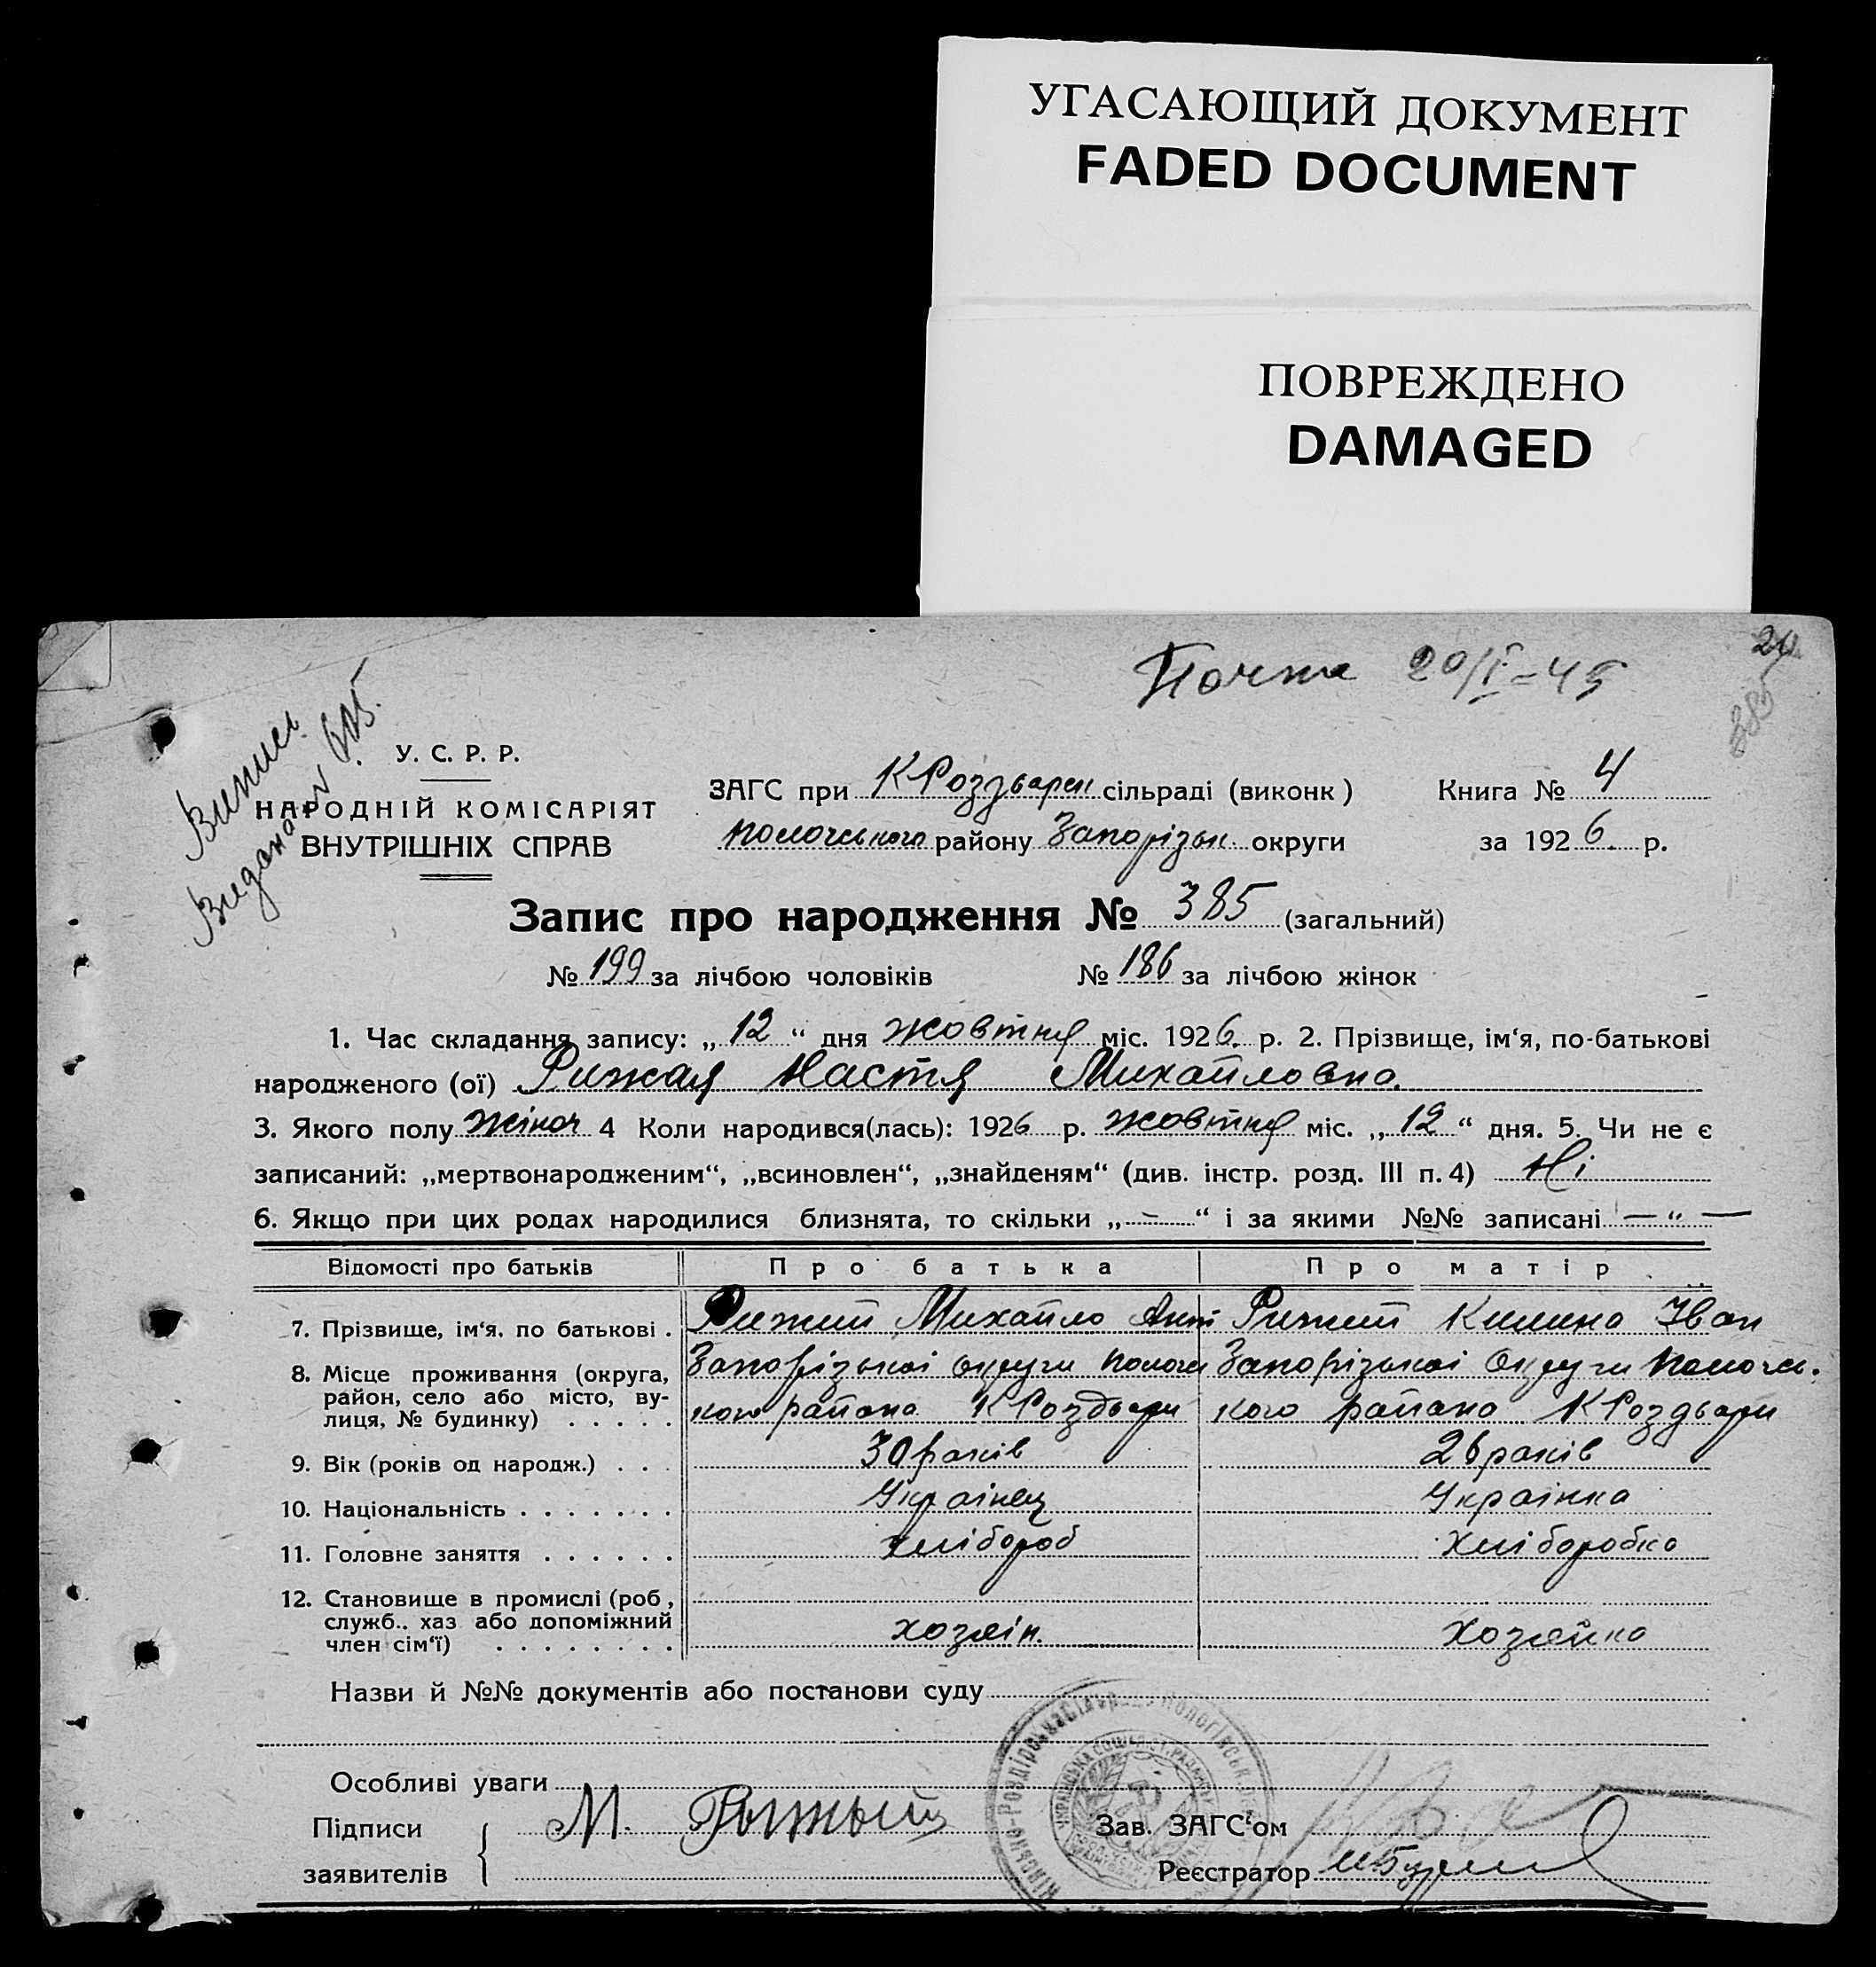 УГАСАЮЩИЙ ДОКУМЕНТ
FADED DOCUMENT
ПОВРЕЖДЕНО
DAMAGED
20
Почта 20/I-45
385
Випись
Видана
У. С. Р. Р.
НАРОДНІЙ КОМІСАРІЯТ
ВНУТРІШНІХ СПРАВ
ЗАГС при К Роздьорск сільраді (виконк) Книга № 4
Пологського району Запорізьк. округи за 1926. р.
Запис про народження № 385 (загальний)
№ 199 за лічбою чоловіків № 186 за лічбою жінок
1. Час складання запису: „ 12 “ дня жовтня міс. 1926. р. 2. Прізвище, ім‘я, по-батькові
народженого (ої) Рижая Настя Михайловна.
3. Якого полу жіноч 4 Коли народився(лась): 1926 р. жовтня міс. „ 12 “ дня. 5. Чи не є
записаний: „мертвонародженим“, „всиновлен“, „знайденям“ (див. інстр. розд. III п. 4) Ні
6. Якщо при цих родах народилися близнята, то скільки „ - “ і за якими №№ записані — „ —
Відомості про батьків Про батька Про матір
7. Прізвище, ім‘я, по батькові . Рижий Михайло Ант Рижий Килина Іван
8. Місце проживання (округа, Запорізької округи Пологс Запорізької Округи Пологсь.
район, село або місто, ву- кого района К Роздьори кого района К Роздьори
лиця, № будинку) . . . . .
9. Вік (років од народж.) . . . 30 років 26 років
10. Національність . . . . . . . Українец Українка
11. Головне заняття . . . . . . хлібороб хліборобка
12. Становище в промислі (роб,
служб.. хаз або допоміжний хозяін. хозяйка
член сім‘ї) . . . . . . . .
Назви й №№ документів або постанови суду
Особливі уваги
Підписи М. Рыжый Зав. ЗАГС‘ом
заявителів Реєстратор